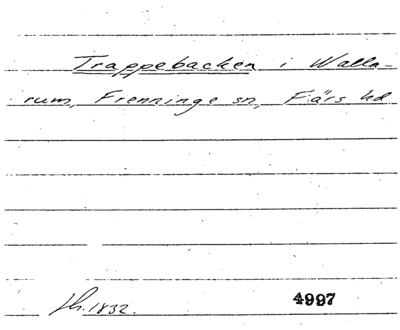 Trappebacken i Walla-
rum, Frenninge sn, Färs hd
h. 1832. 4997